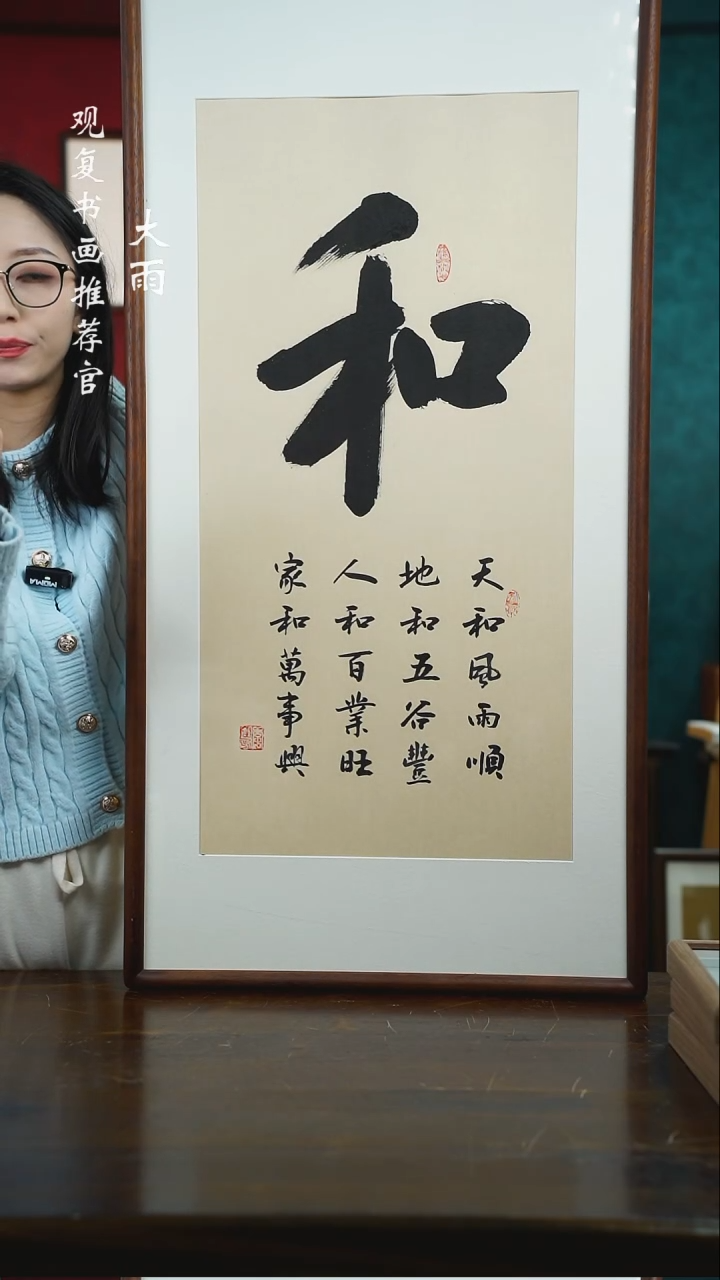 观复书画推荐官
大雨
和
天和風雨順
地和五谷豐
人和百業旺
家和萬事興